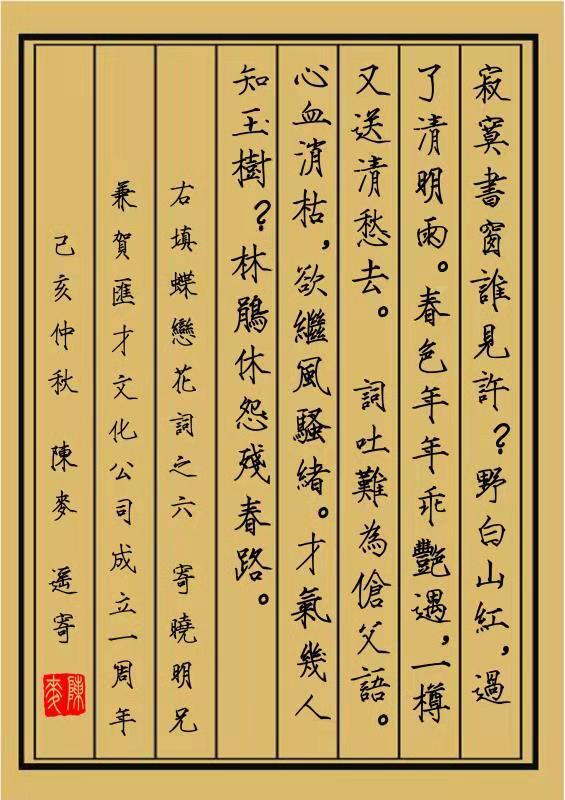 寂寞書窗誰見許？野白山紅，過
了清明雨。春色年年乖艷遇，一樽
又送清愁去。　詞吐難為傖父語。
心血消枯，欲繼風騷緒。才氣幾人
知玉樹？林鵑休怨殘春路。
右填蝶戀花詞之六　寄曉明兄
兼賀匯才文化公司成立一周年
己亥仲秋　陳麥　遥寄
陳麥